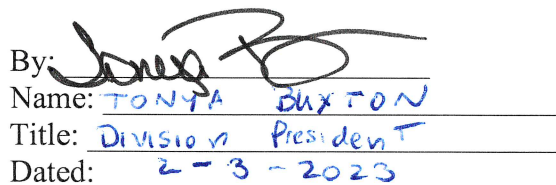 By: Tonya B
Name: TONYA BUXTON
Title: Division President
Dated: 2-3-2023